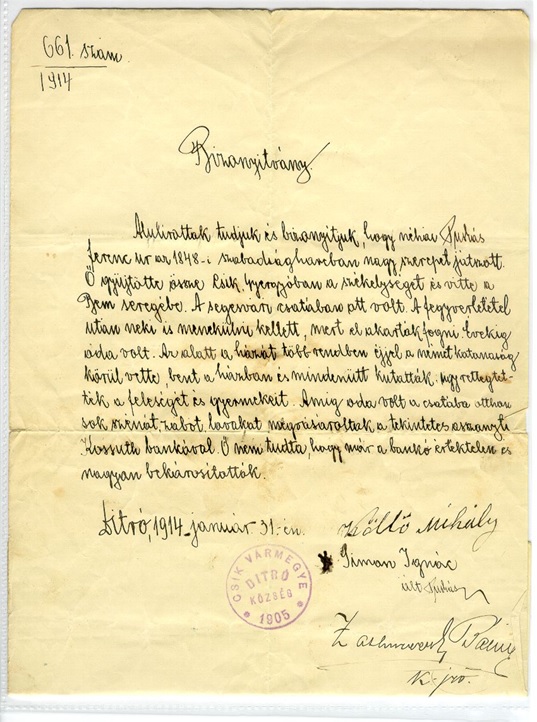 661. szám
1914
Bizonyitvány.
Alulirottak tudjuk és bizonyitjuk, hogy néhai Puskás
Ferenc úr az 1848-i szabadságharcban nagy szerepet játszott.
Ő gyüjtötte össze Csik, Gyergyóban a székelységet és vitte a
Bem seregébe. A segesvári csatában ott volt. A fegyverletétel
után neki is menekülni kellett, mert el akarták fogni. Évekig
oda volt. Az alatt a házát több rendben éjjel a német katonaság
körül vette, bent a házban és mindenütt kutatták, ugy rettegtet
ték a feleségét és gyermekeit. Amig oda volt a csatába otthon
sok szénát, zabot, lovakat megvásároltak a tekintetes asszonytól
Kossuth bankóval. Ő nem tudta, hogy már a bankó értéktelen és
nagyon bekárosították.
Ditró, 1914 január 31-én.
Köllő Mihály
Simon Ignác
CSIK VÁRMEGYE
DITRÓ
KÖZSÉG
1905
k. jző.